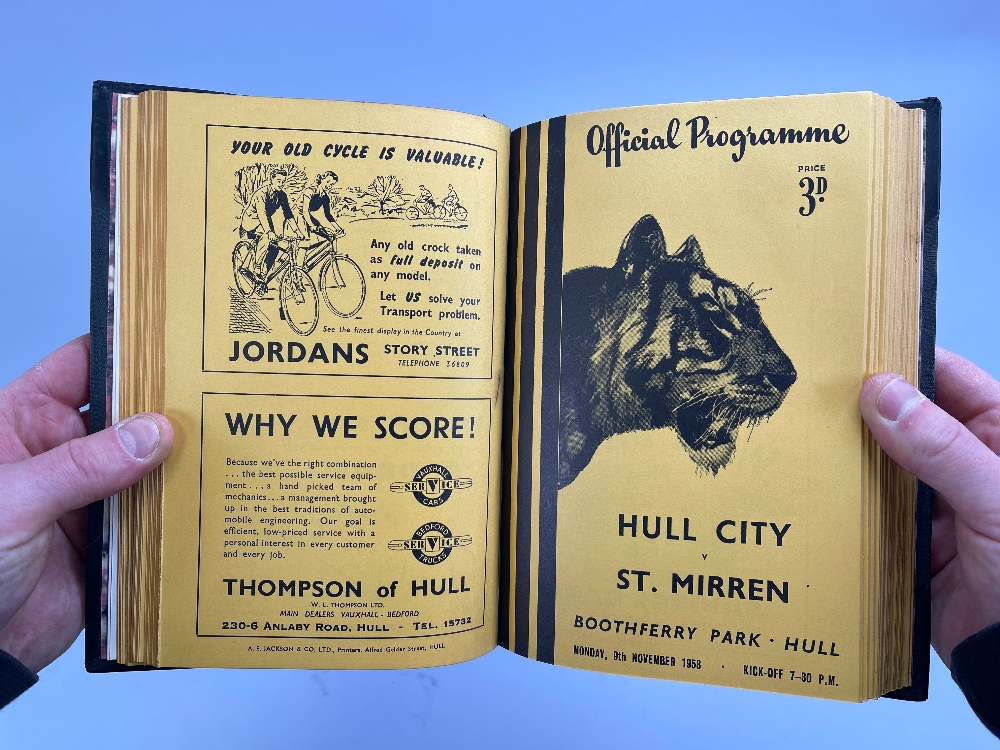 YOUR OLD CYCLE IS VALUABLE!
Any old crock taken
as full deposit on
any model.
Let US solve your
Transport problem.
See the finest display in the Country at
JORDANS STORY STREET
TELEPHONE 36809
WHY WE SCORE!
Because we've the right combination
... the best possible service equip-
ment ... a hand picked team of
mechanics ... a management brought
up in the best traditions of auto-
mobile engineering. Our goal is
efficient, low-priced service with a
personal interest in every customer
and every job.
VAUXHALL
SERVICE
CARS
BEDFORD
SERVICE
TRUCKS
THOMPSON of HULL
W. L. THOMPSON LTD.
MAIN DEALERS VAUXHALL - BEDFORD
230-6 ANLABY ROAD, HULL - TEL. 15732
A. E. JACKSON & CO. LTD., Printers, Alfred Gelder Street, HULL
Official Programme
PRICE
3D.
HULL CITY
v
ST. MIRREN
BOOTHFERRY PARK · HULL
MONDAY, 9th NOVEMBER 1958 · KICK-OFF 7-30 P.M.